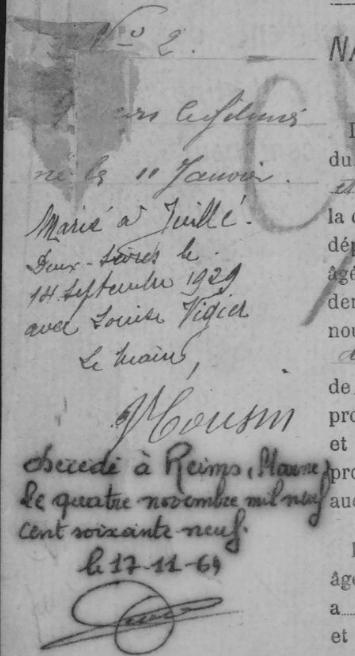 No 2.
né le 11 Janvier.
Marié à Juillé.
Deux-Sèvres le
14 Septembre 1929
avec Louise Vigier
Le Maire,
décédé à Reims (Marne)
le quatre novembre mil neuf
cent soixante neuf.
le 17-11-69
NA
du
la
dép
âgé
der
nou
de
pro
et
pro
aud
âgé
a
et